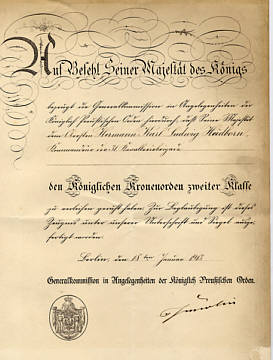 Auf Befehl Seiner Majestät des Königs
bezeugt die Generalkommission in Angelegenheiten der
Königlich Preußischen Orden hierdurch, daß Seine Majestät
dem Obersten Hermann Karl Ludwig
Kommandeur der Kavalleriebrigade
den Königlichen Kronenorden zweiter Klasse
zu verleihen geruht haben. Zur Beglaubigung ist dieses
Zeugnis unter unserer Unterschrift und Siegel ausgefertigt worden.
Berlin, den 18ten Januar
Generalkommission in Angelegenheiten der Königlich Preußischen Orden.